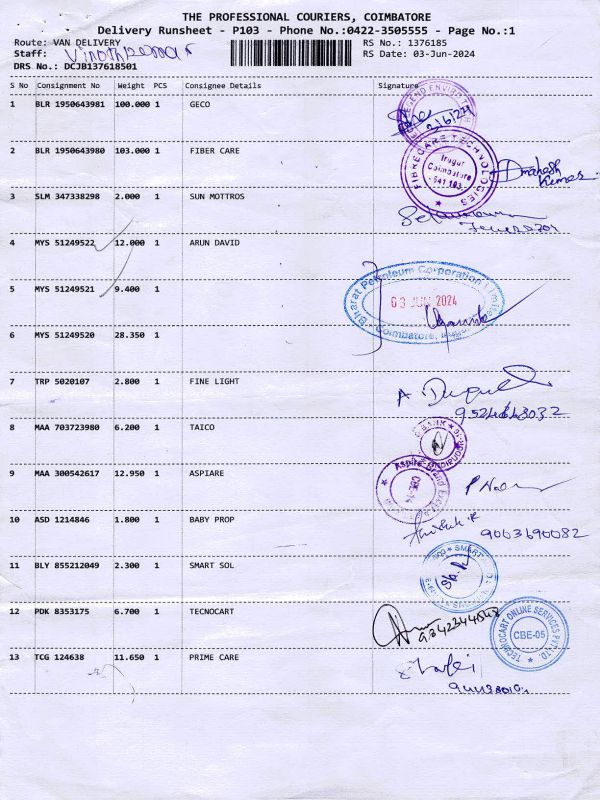 THE PROFESSIONAL COURIERS, COIMBATORE
Delivery Runsheet - P103 - Phone No.:0422-3505555 - Page No.:1
Route: VAN DELIVERY RS No.: 1376185
Staff: RS Date: 03-Jun-2024
DRS No.: DCJB137618501
S No Consignment No Weight PCS Consignee Details Signature
1 BLR 1950643981 100.000 1 GECO
2 BLR 1950643980 103.000 1 FIBER CARE
FIBRECARE TECHNOLOGIES
Irugur
Coimbatore
641 103.
Kumar
3 SLM 347338298 2.000 1 SUN MOTTROS
4 MYS 51249522 12.000 1 ARUN DAVID
5 MYS 51249521 9.400 1
Bharat Petroleum Corporation Limited
03 JUN 2024
Coimbatore,
6 MYS 51249520 28.350 1
7 TRP 5020107 2.800 1 FINE LIGHT
8 MAA 703723980 6.200 1 TAICO
9 MAA 300542617 12.950 1 ASPIARE
CBE-14
10 ASD 1214846 1.800 1 BABY PROP
9063690082
11 BLY 855212049 2.300 1 SMART SOL
SMART
12 PDK 8353175 6.700 1 TECNOCART
9342344548
TECHNOCART ONLINE SERVICES PVT LTD.
CBE-05
13 TCG 124638 11.650 1 PRIME CARE